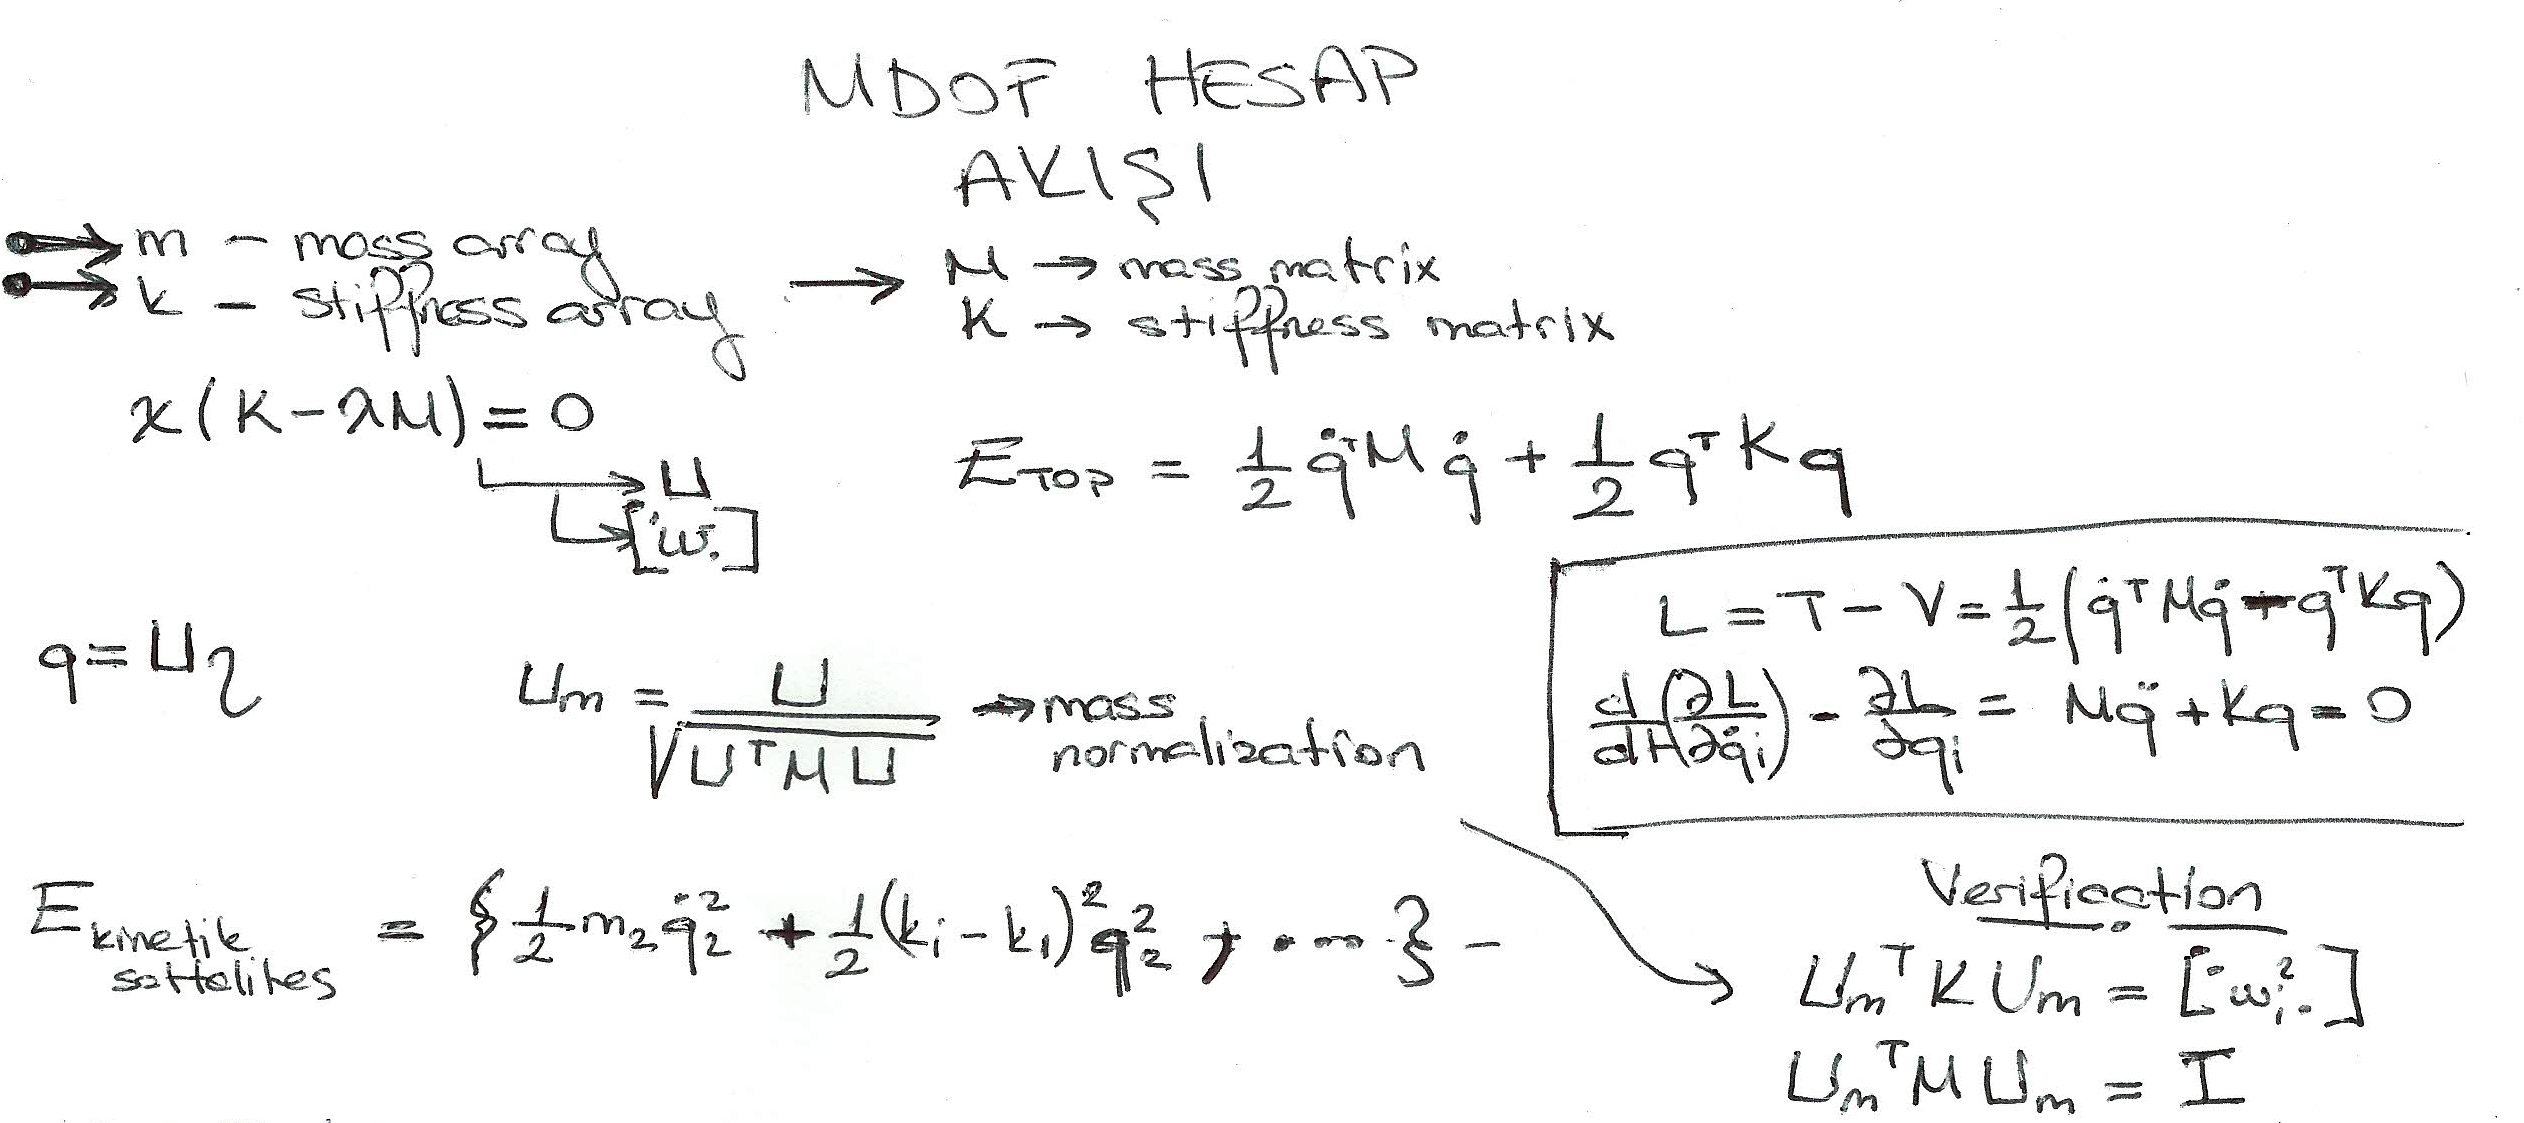 MDOF HESAP
AKIŞI
m - mass array
k - stiffness array
→ M → mass matrix
K → stiffness matrix
x(K-λM)=0
U
[⋱w⋱]
E_TOP = 1/2 q̇ᵀM q̇ + 1/2 qᵀKq
L = T - V = 1/2 (q̇ᵀMq̇ - qᵀKq)
d/dt(∂L/∂q̇i) - ∂L/∂qi = Mq̈ + Kq = 0
q = Uη
Um = U/√(UᵀMU) → mass
normalization
E kinetik
sattelites = {1/2 m₂q̇₂² + 1/2 (ki - k₁)² q₂² , ..... } -
Verification
Umᵀ K Um = [⋱wi²⋱]
UmᵀM Um = I